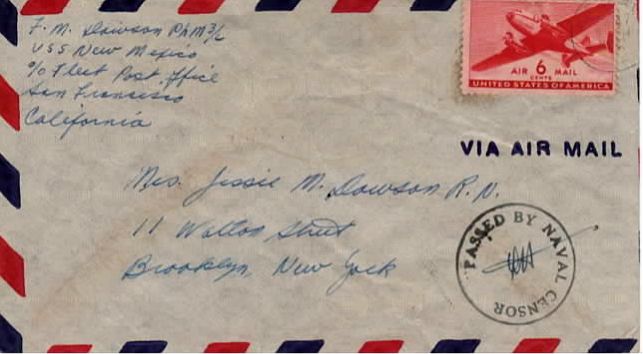 F. M. Dawson PhM 3/c
USS New Mexico
c/o Fleet Post Office
San Francisco
California
AIR 6 MAIL
CENTS
UNITED STATES OF AMERICA
VIA AIR MAIL
Mrs. Jessie M. Dawson R.N.
11 Walton Street
Brooklyn, New York
PASSED BY NAVAL CENSOR